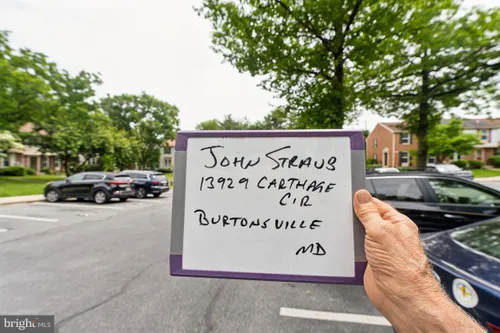 JOHN STRAUB
13929 CARTHAGE
CIR
BURTONSVILLE
MD
bright MLS